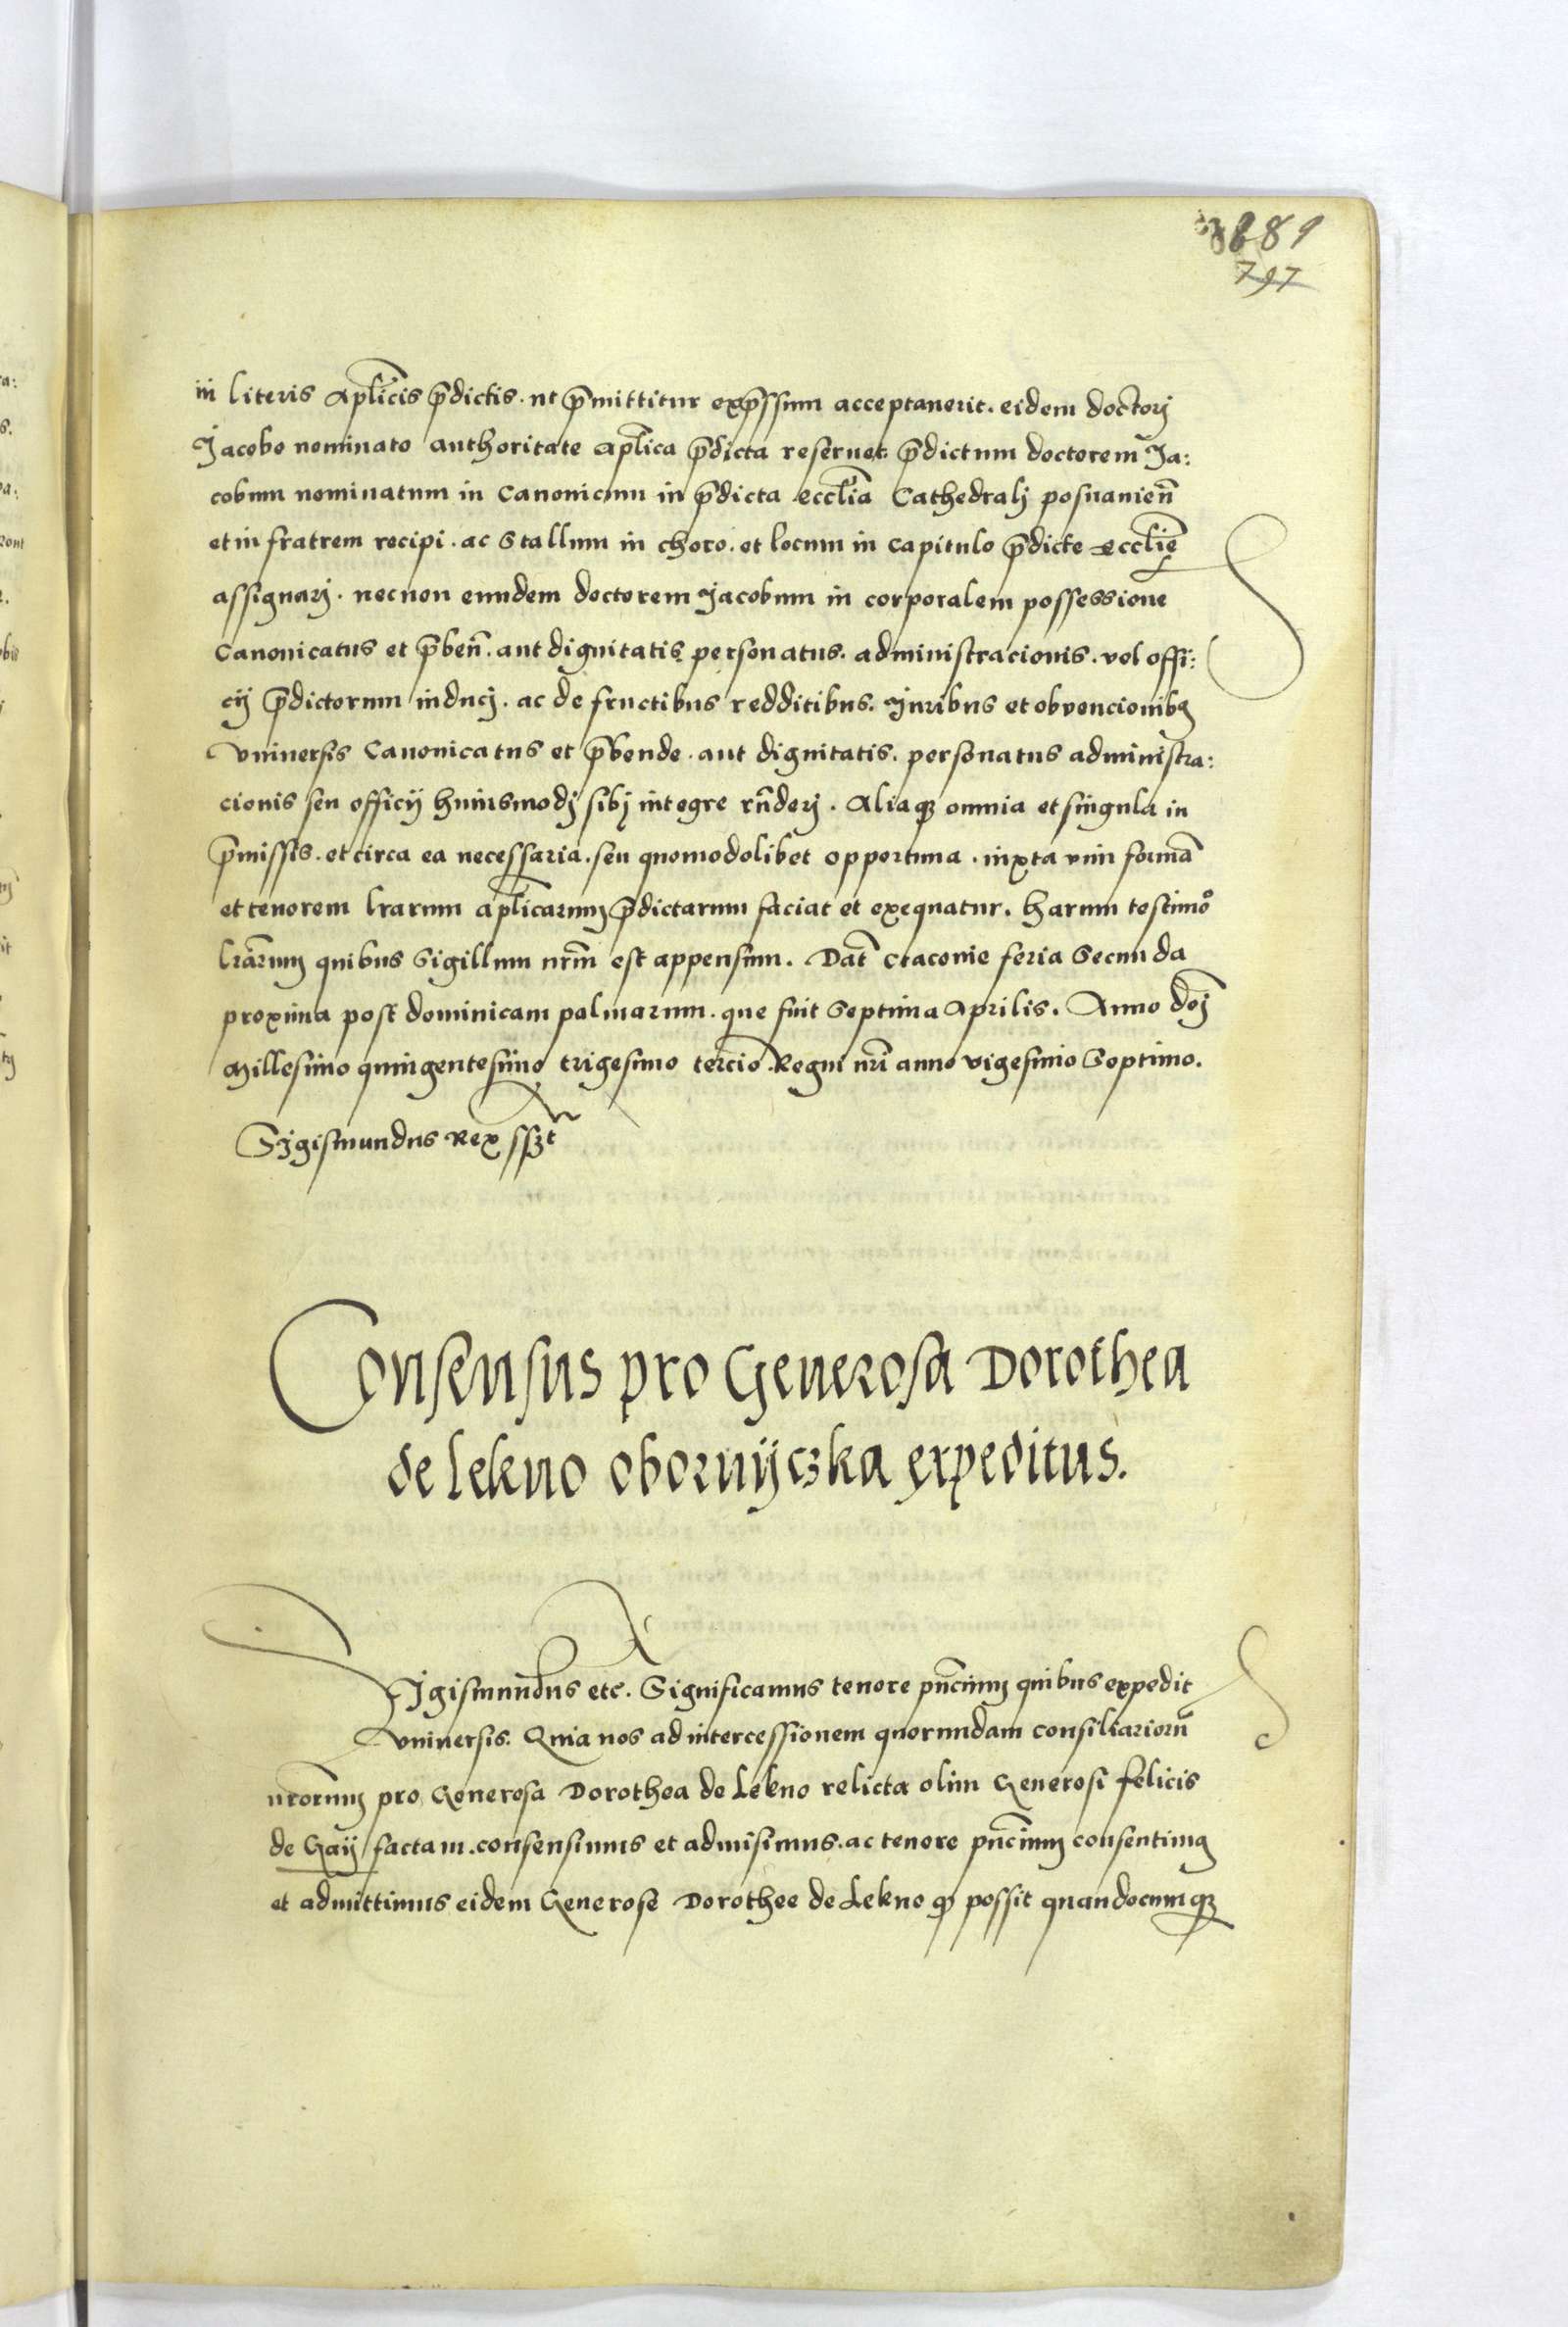 889
797
in literis aplicis p̄dictis. ut p̄mittitur exp̄ssum acceptaverit. eidem doctorj
Jacobo nominato authoritate aplica p̄dicta reservet. p̄dictum doctorem Ja:
cobum nominatum in Canonicum in p̄dicta eccl̄ia Cathedralj posnanieñ
et in fratrem recipi. ac stallum in choro. et locum in capitulo p̄dicte Eccl̄ie
assignarj. necnon eundem doctorem Jacobum in corporalem possessionē
Canonicatus et p̄beñ. aut dignitatis personatus. administracionis. vel offi:
cij p̄dictorum inducj. ac de fructibus redditibus. Juribus et obvencionibꝫ
vniversis Canonicatus et p̄bende. aut dignitatis. personatus administra:
cionis seu officij huiusmodj sibj integre rn̄derj. Aliaqꝫ omnia et singula in
p̄missis. et circa ea necessaria. seu quomodolibet opportuna. iuxta vim formā
et tenorem lrarum aplicarum p̄dictarum faciat et exequatur. harum testimo
lrārum quibus Sigillum nrm̄ est appensum. Dat̄ Cracovie feria Secunda
proxima post dominicam palmarum. que fuit Septima Aprilis. Anno dn̄j
Millesimo quingentesimo trigesimo tercio. Regni nrī anno vigesimo Septimo.
Sigismundus Rex sszt
Consensus pro Generosa Dorothea
de Lekno obornijczka expeditus.
Sigismundus etc. Significamus tenore pn̄cium quibus expedit
vniversis. Quia nos ad intercessionem quorundam consiliariorū
nrorum pro Generosa Dorothea de Lekno relicta olim Generosi felicis
de Gaij factam. consensimus et admisimus. ac tenore pn̄cium consentimꝫ
et admittimus eidem Generose Dorothee de Lekno qꝫ possit quandocumqꝫ